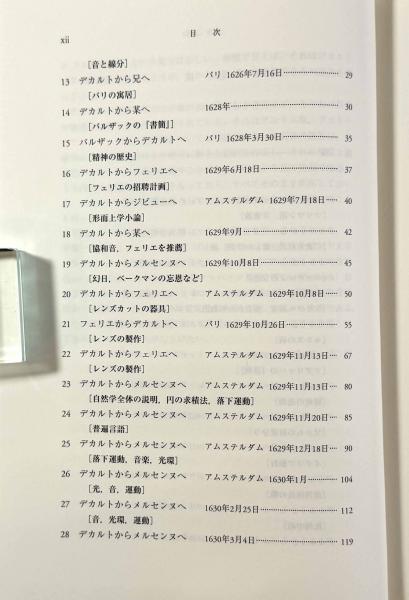 xii 目次
[音と線分]
13 デカルトから兄へ パリ 1626年7月16日……………… 29
[パリの寓居]
14 デカルトから某へ 1628年……………… 30
[バルザックの『書簡』]
15 バルザックからデカルトへ パリ 1628年3月30日……………… 35
[精神の歴史]
16 デカルトからフェリエへ 1629年6月18日……………… 37
[フェリエの招聘計画]
17 デカルトからジビューへ アムステルダム 1629年7月18日…… 40
[形而上学小論]
18 デカルトから某へ 1629年9月……………… 42
[協和音,フェリエを推薦]
19 デカルトからメルセンヌへ 1629年10月8日……………… 45
[幻日,ベークマンの忘恩など]
20 デカルトからフェリエへ アムステルダム 1629年10月8日…… 50
[レンズカットの器具]
21 フェリエからデカルトへ パリ 1629年10月26日……………… 55
[レンズの製作]
22 デカルトからフェリエへ アムステルダム 1629年11月13日… 67
[レンズの製作]
23 デカルトからメルセンヌへ アムステルダム 1629年11月13日… 80
[自然学全体の説明,円の求積法,落下運動]
24 デカルトからメルセンヌへ アムステルダム 1629年11月20日… 85
[普遍言語]
25 デカルトからメルセンヌへ アムステルダム 1629年12月18日… 90
[落下運動,音楽,光環]
26 デカルトからメルセンヌへ アムステルダム 1630年1月…… 104
[光,音,運動]
27 デカルトからメルセンヌへ 1630年2月25日……………… 112
[音,光環,運動]
28 デカルトからメルセンヌへ 1630年3月4日……………… 119